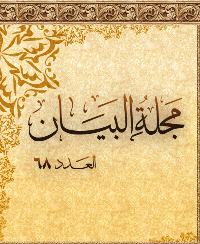 مجلة البيان
العدد ٦٨